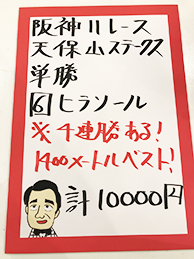 阪神11レース
天保山ステークス
単勝
6 ヒラソール
※4連勝ある!
1400メートルベスト!
計10000円